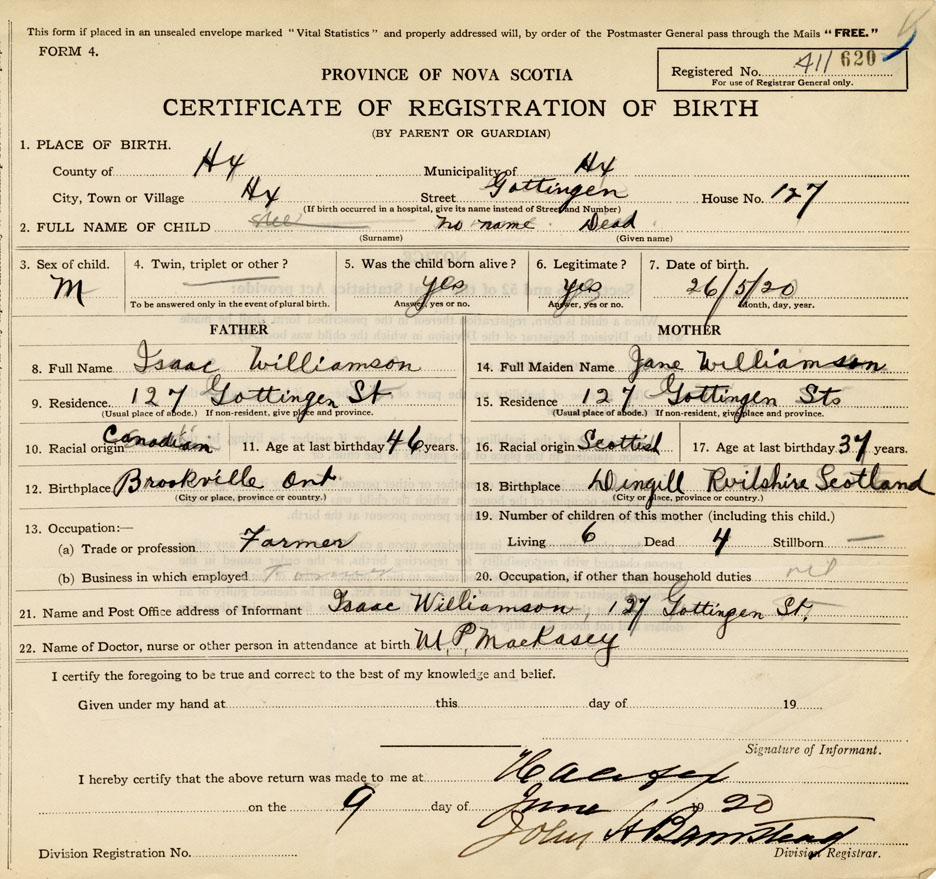 This form if placed in an unsealed envelope marked "Vital Statistics" and properly addressed will, by order of the Postmaster General pass through the Mails "FREE."
FORM 4.
Registered No. 411 620
For use of Registrar General only.
PROVINCE OF NOVA SCOTIA
CERTIFICATE OF REGISTRATION OF BIRTH
(BY PARENT OR GUARDIAN)
1. PLACE OF BIRTH.
County of Hx Municipality of Hx
City, Town or Village Hx Street Gottingen House No. 127
(If birth occurred in a hospital, give its name instead of Street and Number)
2. FULL NAME OF CHILD no name Dead
(Surname) (Given name)
3. Sex of child. 4. Twin, triplet or other? 5. Was the child born alive? 6. Legitimate? 7. Date of birth.
M yes yes 26/5/20
To be answered only in the event of plural birth. Answer, yes or no. Answer, yes or no. Month, day, year.
FATHER MOTHER
8. Full Name Isaac Williamson 14. Full Maiden Name Jane Williamson
9. Residence. 127 Gottingen St 15. Residence 127 Gottingen Sts
(Usual place of abode.) If non-resident, give place and province. (Usual place of abode.) If non-resident, give place and province.
10. Racial origin Canadian 11. Age at last birthday 46 years. 16. Racial origin Scottish 17. Age at last birthday 37 years.
12. Birthplace Brookville Ont 18. Birthplace Dingill Scotland
(City or place, province or country.) (City or place, province or country.)
13. Occupation:— 19. Number of children of this mother (including this child.)
(a) Trade or profession Farmer Living 6 Dead 4 Stillborn —
(b) Business in which employed Farmer 20. Occupation, if other than household duties nil
21. Name and Post Office address of Informant Isaac Williamson, 127 Gottingen St.
22. Name of Doctor, nurse or other person in attendance at birth M. P. MacKasey
I certify the foregoing to be true and correct to the best of my knowledge and belief.
Given under my hand at this day of 19
Signature of Informant.
I hereby certify that the above return was made to me at Halifax
on the 9 day of June 19 20
John H Barnstead
Division Registration No. Division Registrar.